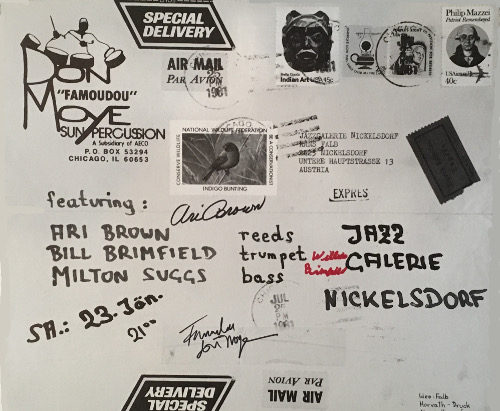 SPECIAL
DELIVERY
DON
"FAMOUDOU"
MOYE
SUN PERCUSSION
A Subsidiary of AECO
P.O. BOX 53294
CHICAGO, IL 60653
AIR MAIL
PAR AVION
1981
Indian Art USA 15c
Philip Mazzei
Patriot Remembered
USAirmail
40c
NATIONAL WILDLIFE FEDERATION
CONSERVE WILDLIFE
BE A CONSERVATIONIST
INDIGO BUNTING
JAZZGALERIE NICKELSDORF
HANS FALB
NICKELSDORF
UNTERE HAUPTSTRASSE 13
AUSTRIA
EXPRES
Ari Brown
featuring:
ARI BROWN reeds
BILL BRIMFIELD trumpet
MILTON SUGGS bass
JAZZ
GALERIE
NICKELSDORF
SA.: 23. Jän.
21 00
JUL
PM
1981
Famoudou
Don Moye
AIR MAIL
PAR AVION
SPECIAL
DELIVERY
Wien-Falb
Horvath-Druck